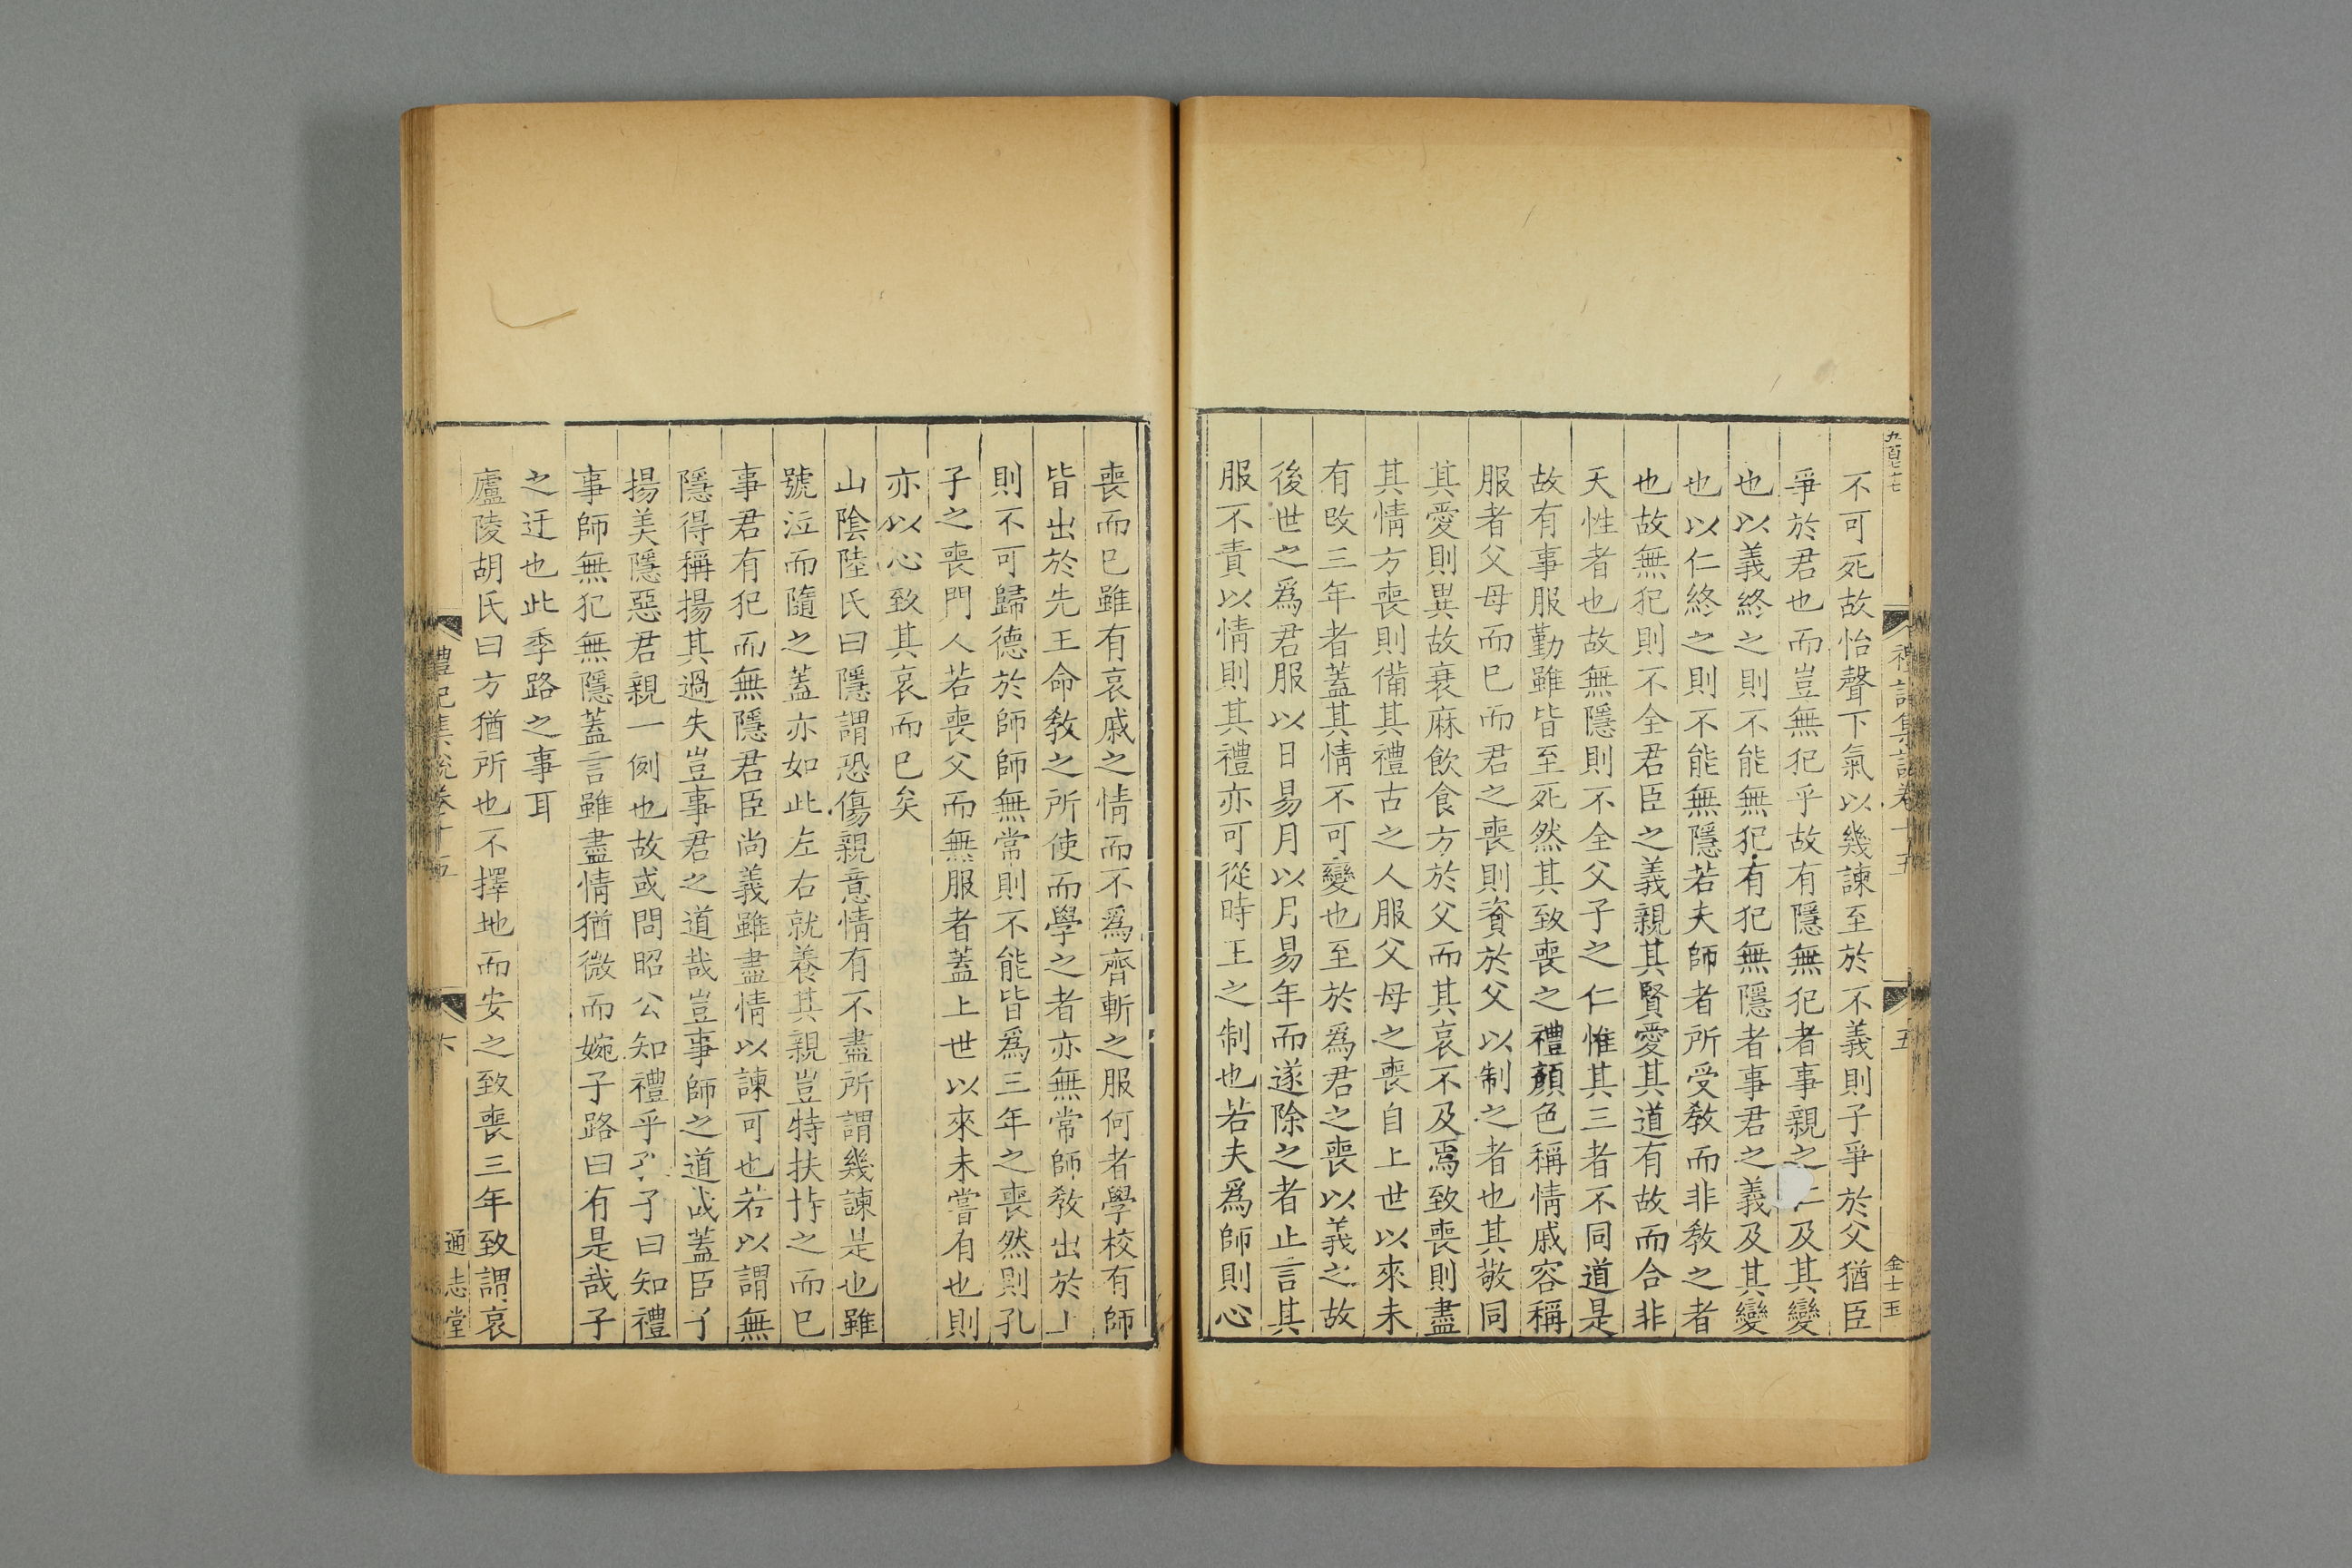 九百七十七
禮記集說卷十五
五
金士玉
不可死故怡聲下氣以幾諫至於不義則子爭於父猶臣
爭於君也而豈無犯乎故有隱無犯者事親之仁及其變
也以義終之則不能無犯有犯無隱者事君之義及其變
也以仁終之則不能無隱若夫師者所受敎而非敎之者
也故無犯則不全君臣之義親其賢愛其道有故而合非
天性者也故無隱則不全父子之仁惟其三者不同道是
故有事服勤雖皆至死然其致喪之禮顔色稱情戚容稱
服者父母而已而君之喪則資於父以制之者也其敬同
其愛則異故衰麻飲食方於父而其哀不及焉致喪則盡
其情方喪則備其禮古之人服父母之喪自上世以來未
有改三年者蓋其情不可變也至於爲君之喪以義之故
後世之爲君服以日易月以月易年而遂除之者止言其
服不責以情則其禮亦可從時王之制也若夫爲師則心
喪而已雖有哀戚之情而不爲齊斬之服何者學校有師
皆出於先王命敎之所使而學之者亦無常師敎出於上
則不可歸德於師師無常則不能皆爲三年之喪然則孔
子之喪門人若喪父而無服者蓋上世以來未嘗有也則
亦以心致其哀而已矣
山陰陸氏曰隱謂恐傷親意情有不盡所謂幾諫是也雖
號泣而隨之蓋亦如此左右就養其親豈特扶持之而已
事君有犯而無隱君臣尚義雖盡情以諫可也若以謂無
隱得稱揚其過失豈事君之道哉豈事師之道哉蓋臣子
揚美隱惡君親一例也故或問昭公知禮乎孔子曰知禮
事師無犯無隱蓋言雖盡情猶微而婉子路曰有是哉子
之迂也此季路之事耳
廬陵胡氏曰方猶所也不擇地而安之致喪三年致謂哀
禮記集說卷十五
六
通志堂